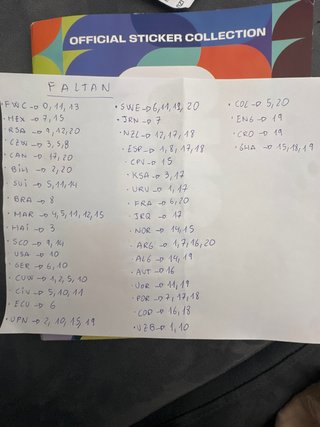 OFFICIAL STICKER COLLECTION
FALTAN
· FWC → 0, 11, 13
· MEX → 7, 15
· RSA → 9, 12, 20
· CZW → 3, 5, 8
· CAN → 17, 20
· BIH → 2, 20
· SUI → 5, 11, 14
· BRA → 8
· MAR → 4, 5, 11, 12, 15
· HAI → 3
· SCO → 9, 14
· USA → 10
· GER → 6, 10
· CUW → 1, 2, 5, 10
· CIV → 5, 10, 11
· ECU → 6
· JPN → 2, 10, 15, 19
· SWE → 6, 11, 12, 20
· JRN → 7
· NZL → 12, 17, 18
· ESP → 1, 8, 17, 18
· CPV → 15
· KSA → 3, 17
· URU → 1, 17
· FRA → 6, 20
· IRQ → 17
· NOR → 14, 15
· ARG → 1, 7, 16, 20
· ALG → 14, 19
· AUT → 16
· JOR → 11, 19
· POR → 7, 17, 18
· COD → 16, 18
· UZB → 1, 10
· COL → 5, 20
· ENG → 19
· CRO → 19
· GHA → 15, 18, 19